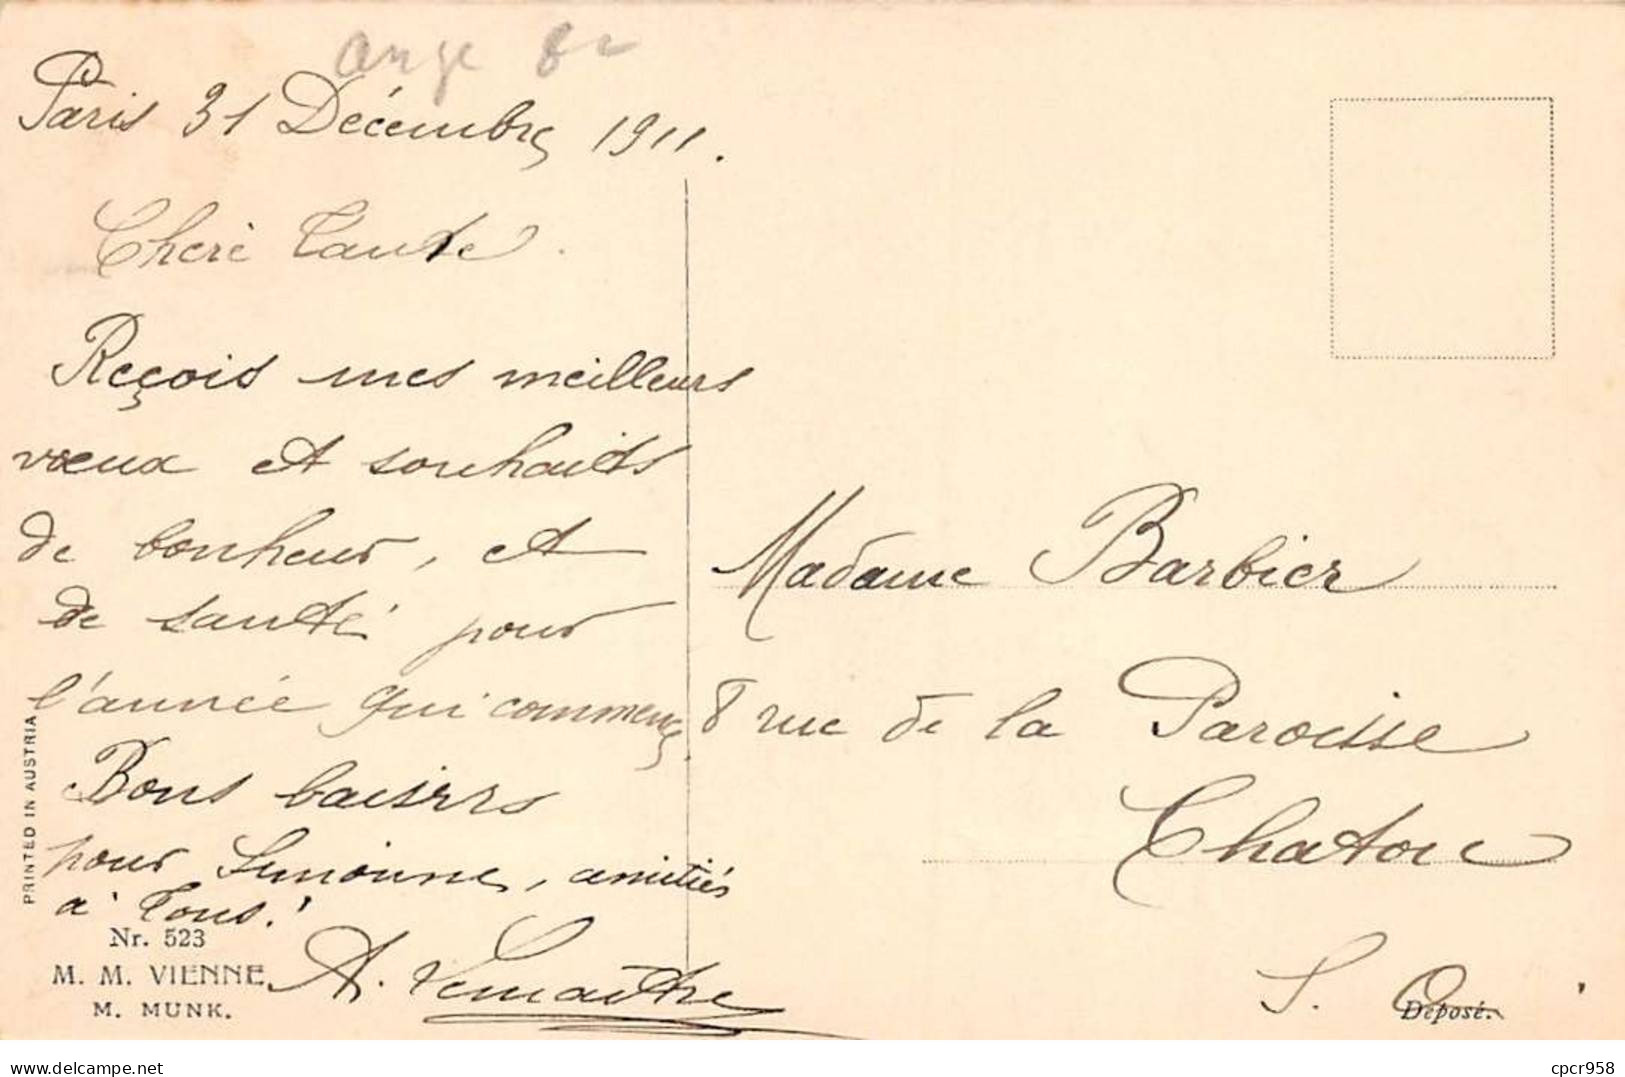 Ange
Paris 31 Décembre 1911.
Cherè Tante.
Reçois mes meilleurs
vœux et souhaits
de bonheur, et
de santé pour
l'année qui commence.
Bons baisers
pour Simonne, amitiés
à Tous!
A. Lemaitre
PRINTED IN AUSTRIA
Nr. 523
M. M. VIENNE
M. MUNK.
Madame Barbier
8 rue de la Paroisse
Chatou
S. O.
Déposé.
www.delcampe.net
cpcr958